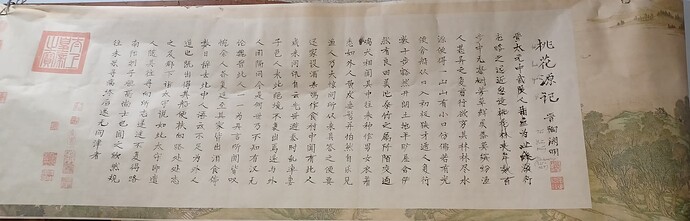 桃花源記 晉 陶淵明
晉太元中武陵人捕魚為業緣溪行
忘路之遠近忽逢桃花林夾岸數百
步中無雜樹芳草鮮美落英繽紛漁
人甚異之復前行欲窮其林林盡水
源便得一山山有小口仿佛若有光
便舍船從口入初極狹才通人復行
數十步豁然開朗土地平曠屋舍儼
然有良田美池桑竹之屬阡陌交通
雞犬相聞其中往來種作男女衣著
悉如外人黃髮垂髫并怡然自樂見
漁人乃大驚問所從來具答之便要
還家設酒殺雞作食村中聞有此人
咸來問訊自云先世避秦時亂率妻
子邑人來此絕境不復出焉遂與外
人間隔問今是何世乃不知有漢無
論魏晉此人一一為具言所聞皆嘆
惋餘人各復延至其家皆出酒食停
數日辭去此中人語云不足為外人
道也既出得其船便扶向路處處誌
之及郡下詣太守說如此太守即遣
人隨其往尋向所誌遂迷不復得路
南陽劉子驥高尚士也聞之欣然規
往未果尋病終後遂無問津者